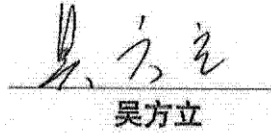 吴方立
吴方立